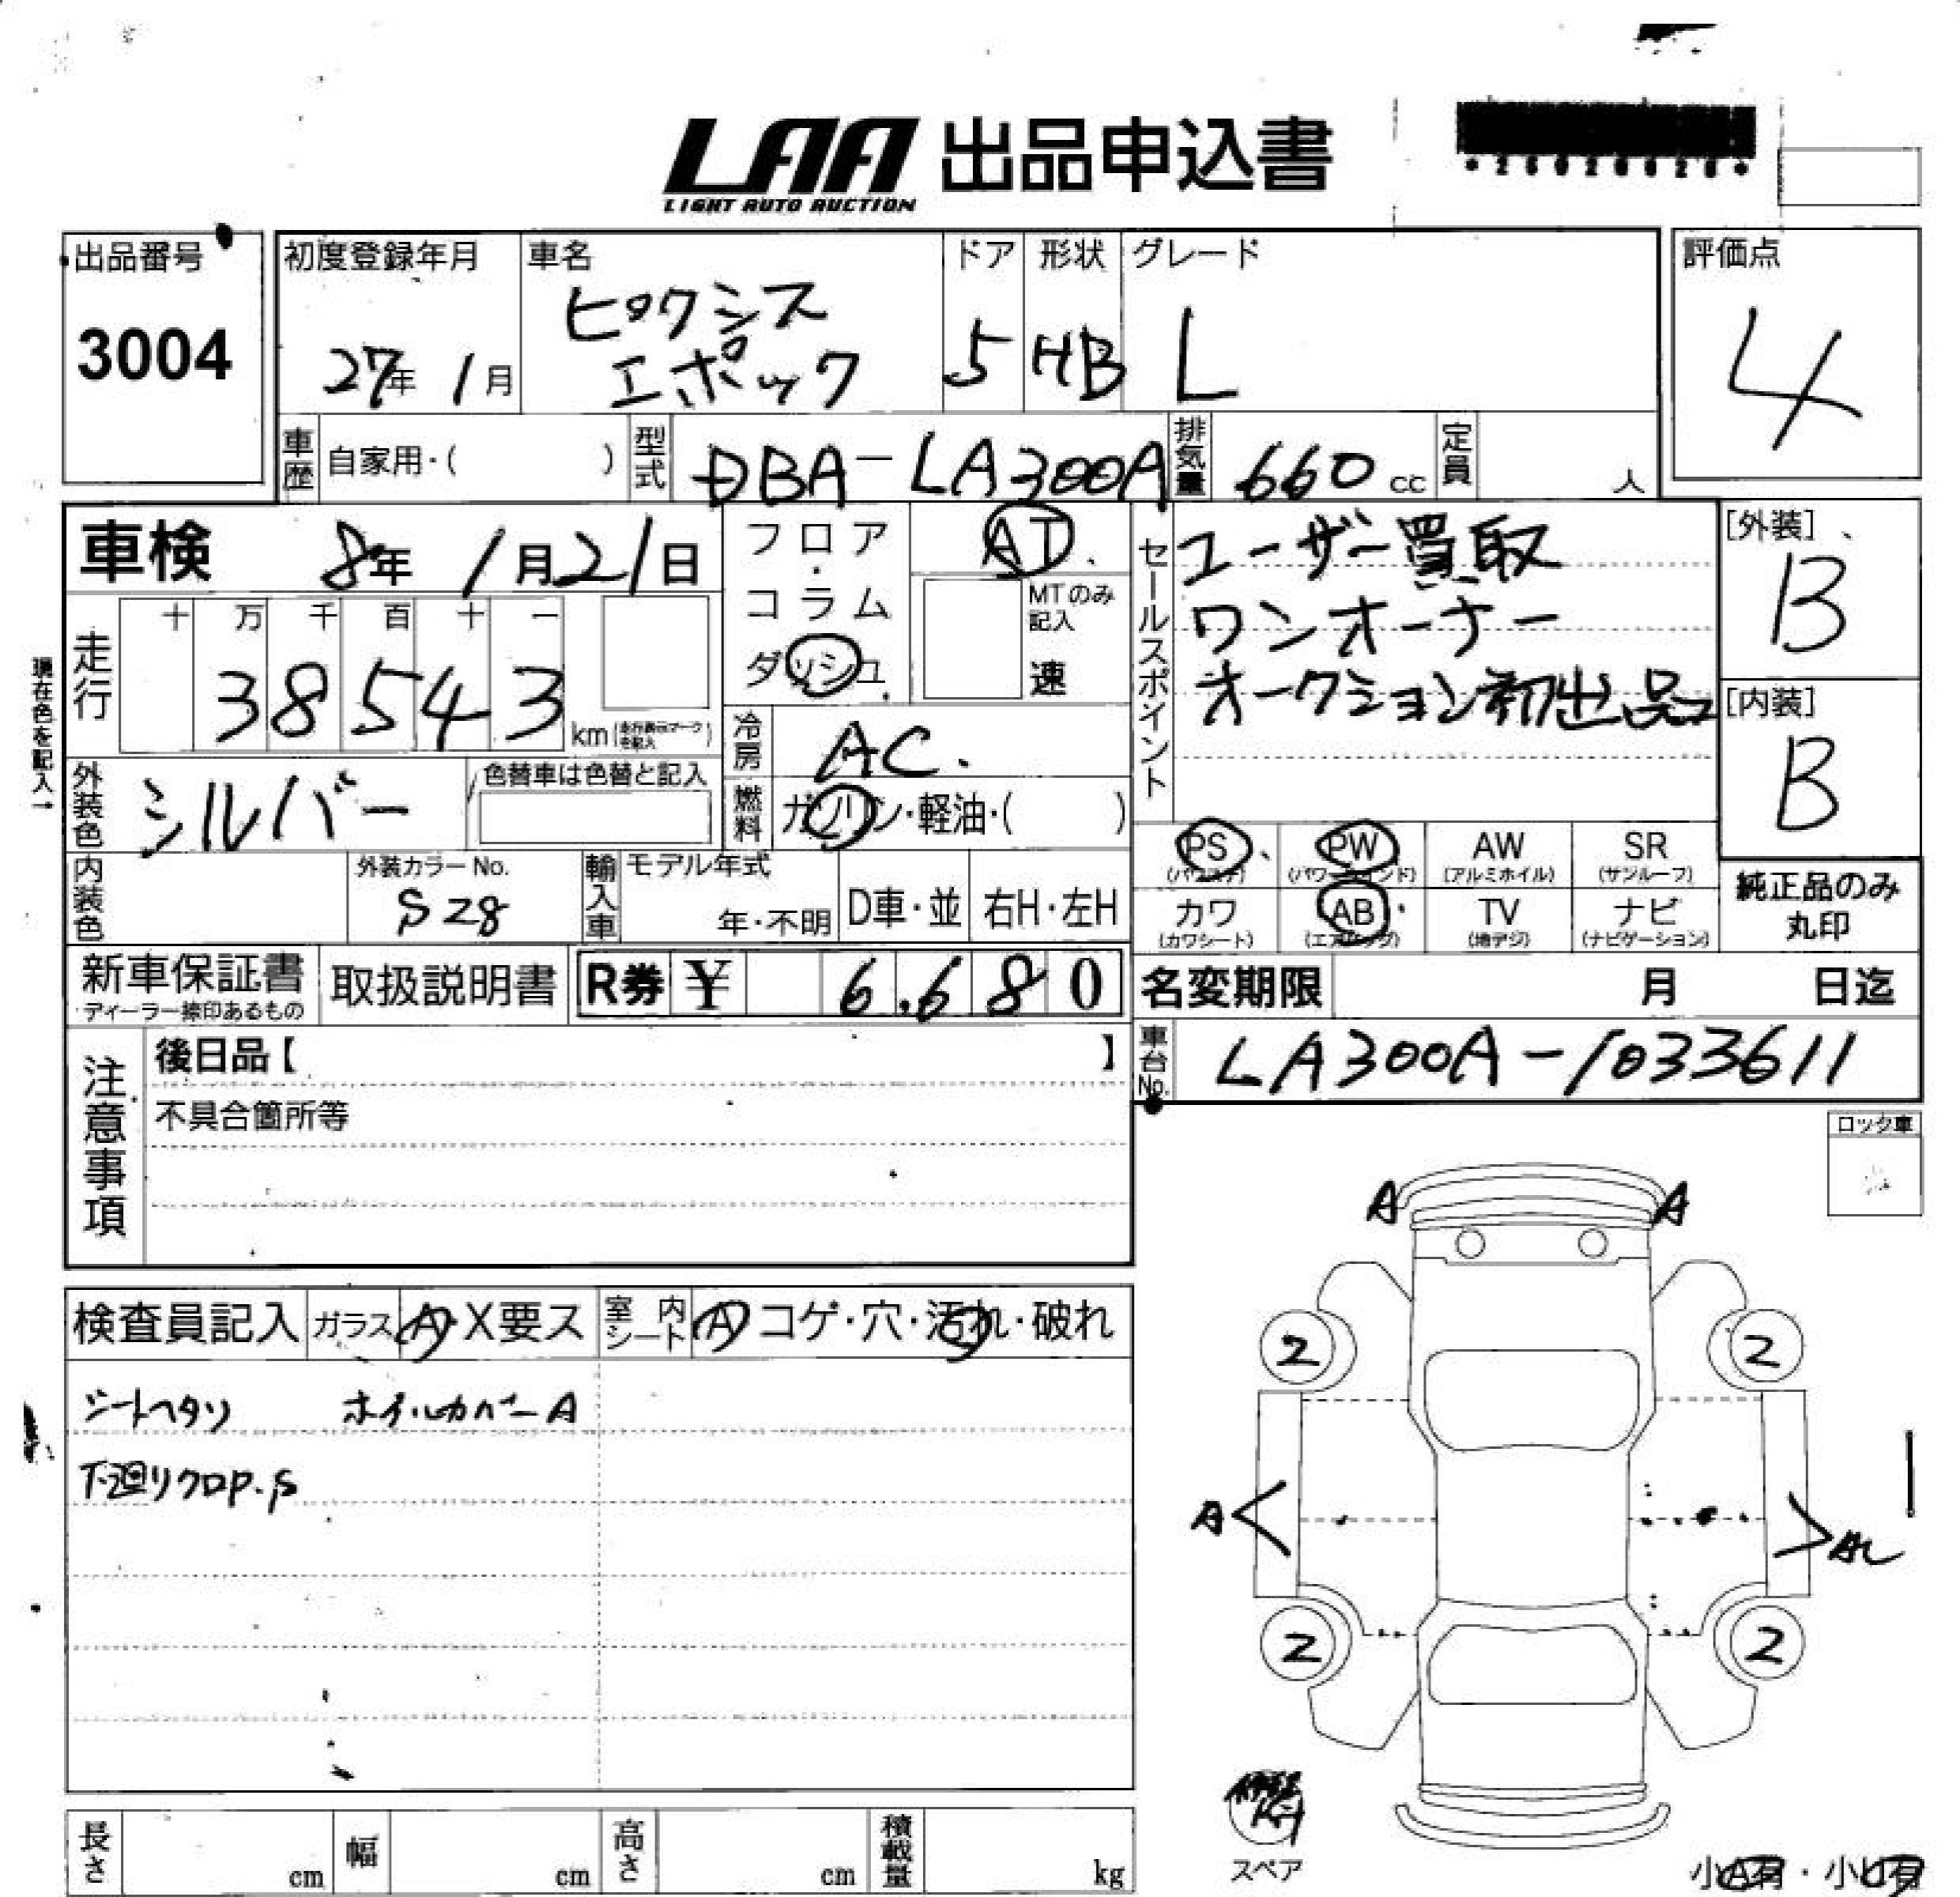 LAA 出品申込書
LIGHT AUTO AUCTION
出品番号
3004
初度登録年月
27年 1月
車名
ピクシス
エポック
ドア
5
形状
HB
グレード
L
評価点
4
車歴 自家用・( )
型式 DBA-LA300A
排気量 660 cc
定員 人
車検 8年 1月21日
フロア・コラム
ダッシュ
AT
MTのみ記入
速
セールスポイント
ユーザー買取
ワンオーナー
オークション初出品
[外装]
B
[内装]
B
現在色を記入→
走行
十 万 千 百 十 一
38543
km(走行表示マークを記入)
冷房 AC
外装色 シルバー
色替車は色替と記入
燃料 ガソリン・軽油・( )
内装色
外装カラーNo.
S28
輸入車
モデル年式
年・不明
D車・並
右H・左H
PS (パワステ)
PW (パワーウインド)
AW (アルミホイル)
SR (サンルーフ)
カワ (カワシート)
AB (エアバッグ)
TV (地デジ)
ナビ (ナビゲーション)
純正品のみ
丸印
新車保証書
ディーラー捺印あるもの
取扱説明書
R券 ¥ 6,680
名変期限 月 日迄
車台No. LA300A-1033611
注意事項
後日品【 】
不具合箇所等
ロック車
検査員記入
ガラス A・X要ス
室内シート A コゲ・穴・汚れ・破れ
シートヘタリ ホイルカバーA
下廻りクロP.S
A A
2 2
A
2 2
スペア
長さ cm
幅 cm
高さ cm
積載量 kg
小A有・小U有